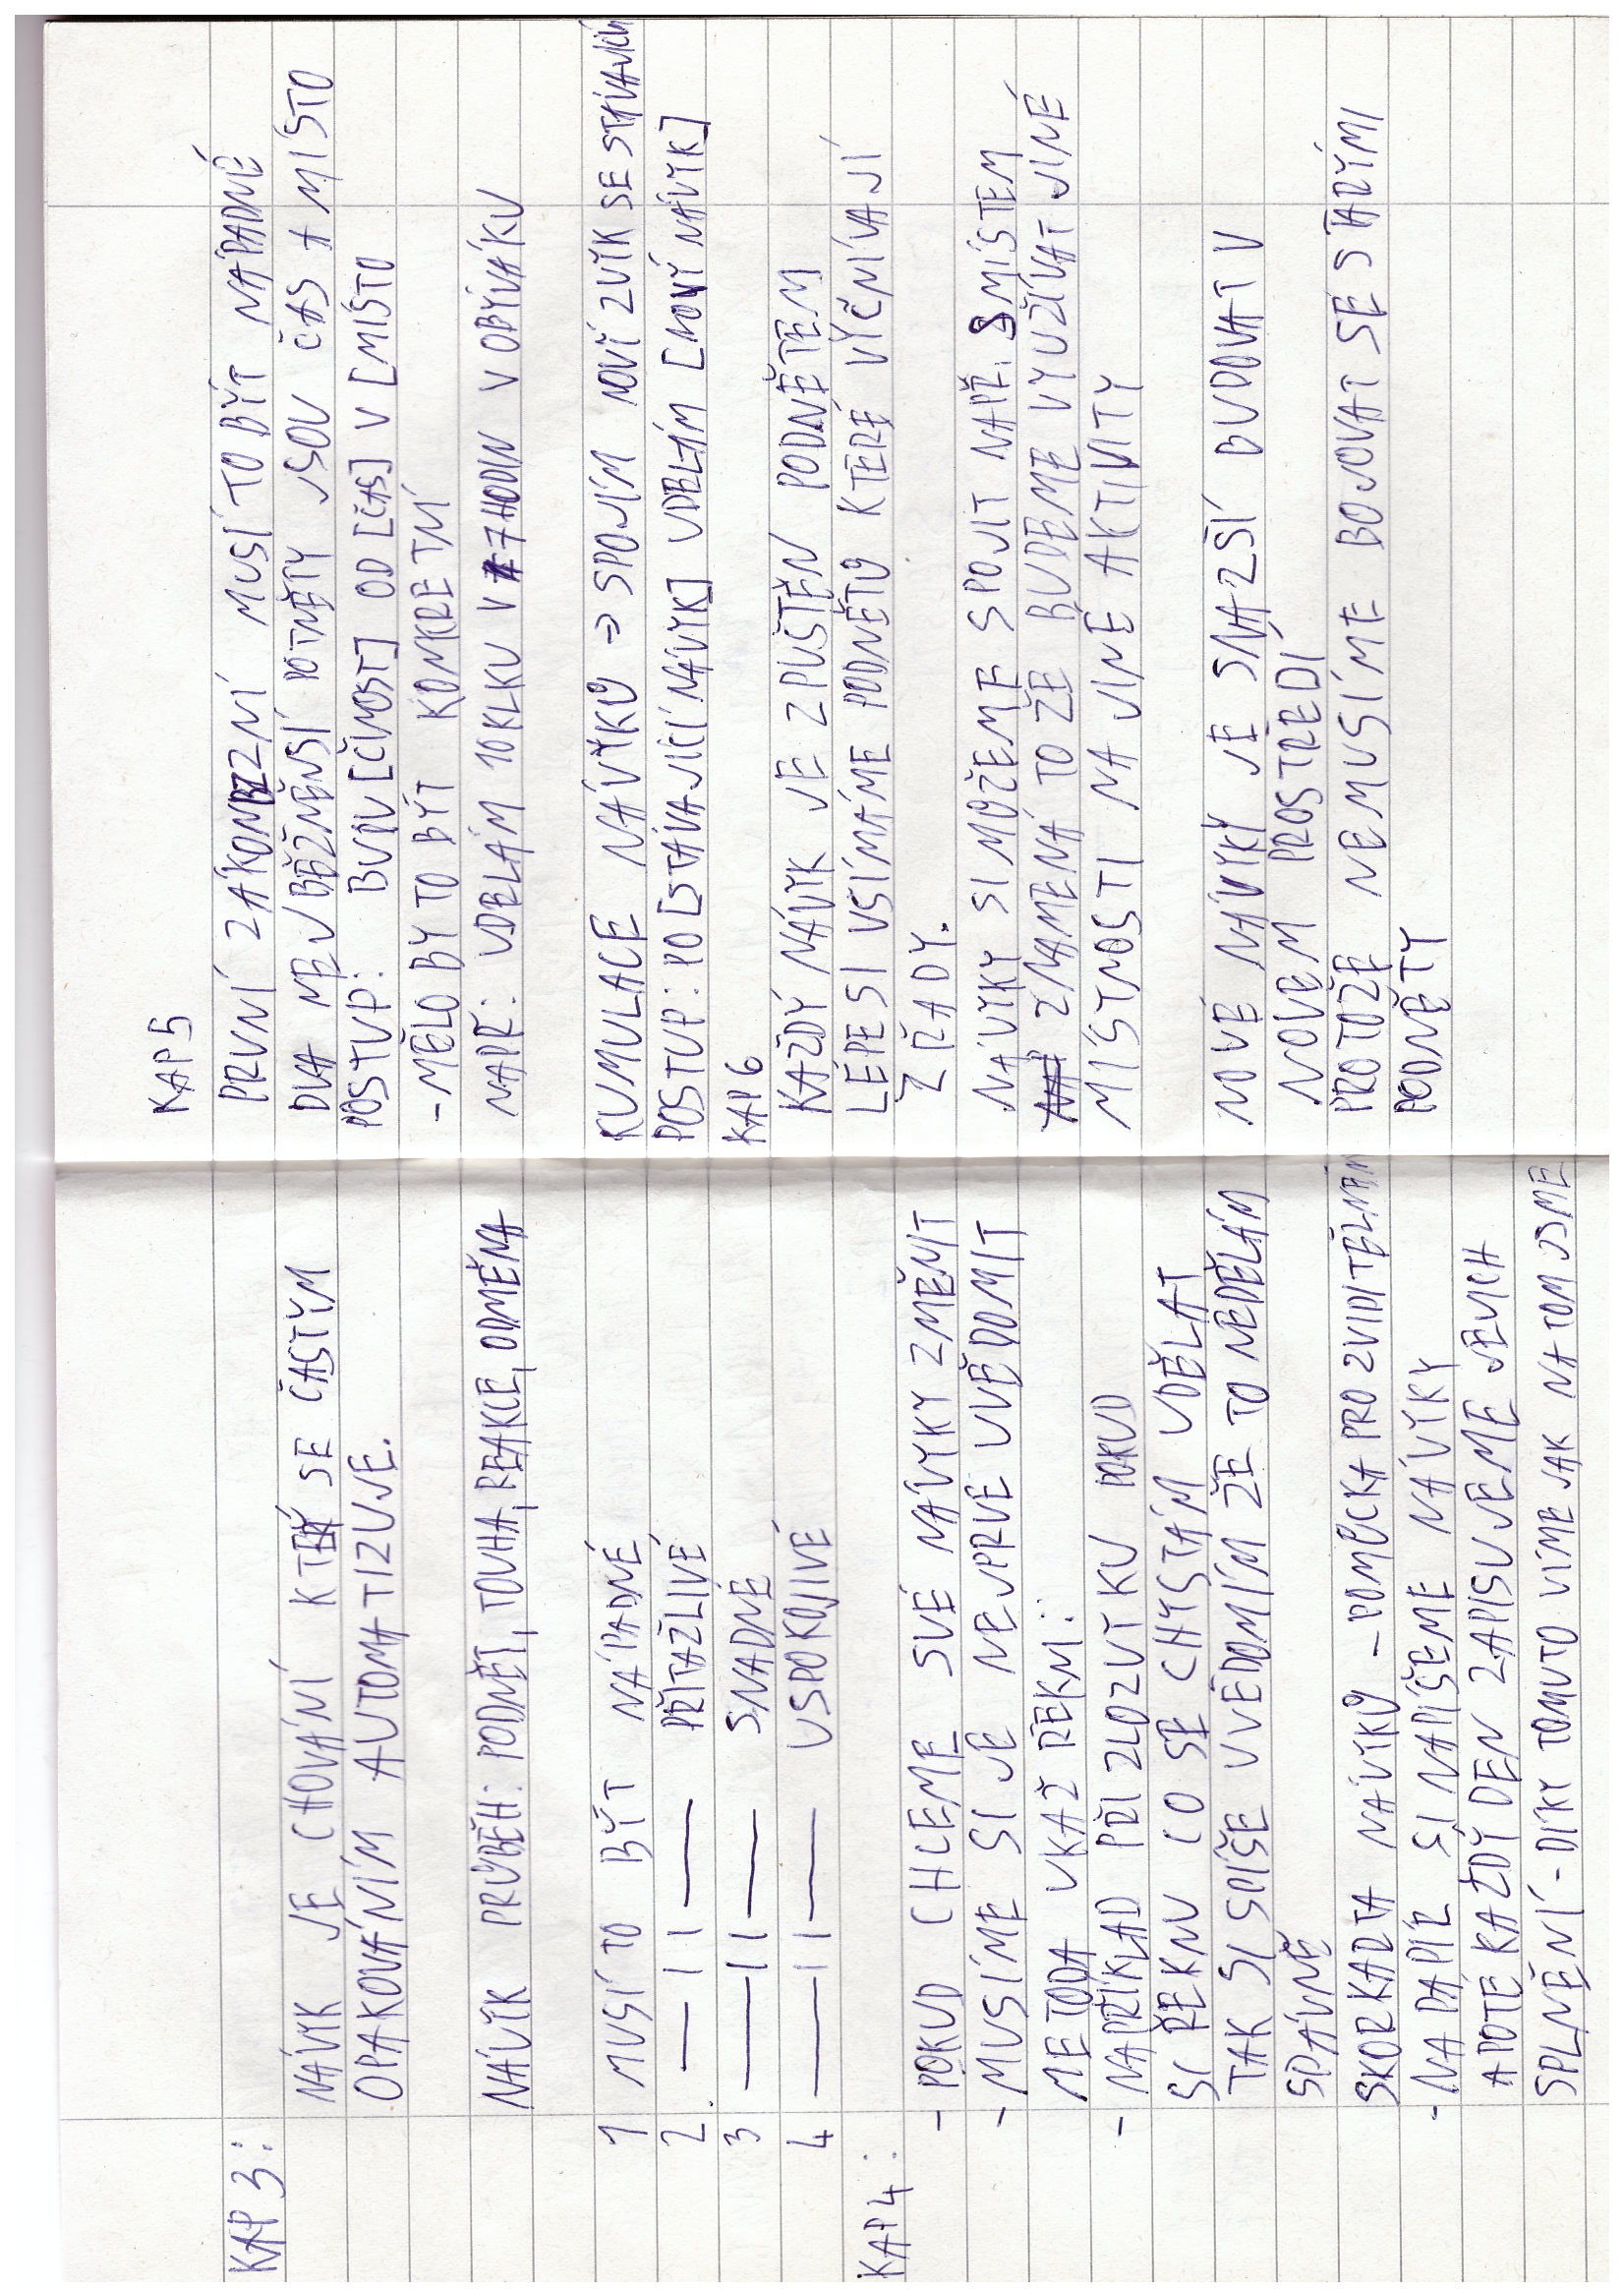 KAP 3:
NÁVYK JE CHOVÁNÍ KTERÝ SE ČASTÝM
OPAKOVÁNÍM AUTOMATIZUJE.
NÁVÍK PRŮBĚH: PODNĚT, TOUHA, REAKCE, ODMĚNA
1 MUSÍ TO BÝT NÁPADNÉ
2 —— | | —— PŘITAŽLIVÉ
3 —— | | —— SNADNÉ
4 —— | | —— USPOKOJIVÉ
KAP 4:
- POKUD CHCEME SVÉ NÁVYKY ZMĚNIT
- MUSÍME SI JE NEJPRVE UVĚDOMIT
METODA UKAŽ ŘEKNI:
- NAPŘÍKLAD PŘI ZLOZVYKU POKUD
SI ŘEKNU CO SE CHYSTÁM UDĚLAT
TAK SI SPÍŠE UVĚDOMÍM ŽE TO NEDĚLÁM
SPÁVNĚ
SKORKARTA NÁVYKŮ - POMŮCKA PRO ZVIDITELNĚNÍ
- NA PAPÍR SI NAPÍŠEME NÁVYKY
A POTÉ KAŽDÝ DEN ZAPISUJEME JEJICH
SPLNĚNÍ - DÍKY TOMUTO VÍME JAK NA TOM JSME
KAP 5
PRVNÍ ZÁKON ZNÍ MUSÍ TO BÝT NÁPADNÉ
DVA NEJBĚŽNĚJŠÍ POTNĚTY JSOU ČAS A MÍSTO
POSTUP: BUDU [ČINOST] OD [ČAS] V [MÍSTO
- MĚLO BY TO BÝT KONKRETNÍ
NAPŘ: UDELÁM 10 KLKU V 7 HODIN V OBÝVÁKU
KUMULACE NÁVYKŮ → SPOJÍM NOVÍ ZVYK SE STÁVAJÍCÍM
POSTUP: PO [STÁVAJÍCÍ NÁVYK] UDELÁM [NOVÝ NÁVYK]
KAP 6
KAŽDÝ NÁVYK JE ZPUŠTĚN PODNĚTEM
LÉPE SI VŠÍMÁME PODNĚTŮ KTERÉ VYČNÍVAJÍ
Z ŘADY.
NÁVYKY SI MŮŽEME SPOJIT NAPŘ. S MÍSTEM
ZNAMENÁ TO ŽE BUDEME VYUŽÍVAT JINÉ
MÍSTNOSTI NA JINÉ AKTIVITY
NOVÉ NÁVYKY JE SNAZŠÍ BUDOVAT V
NOVÉM PROSTŘEDÍ
PROTOŽE NEMUSÍME BOJOVAT SE STARÝMI
PODNĚTY